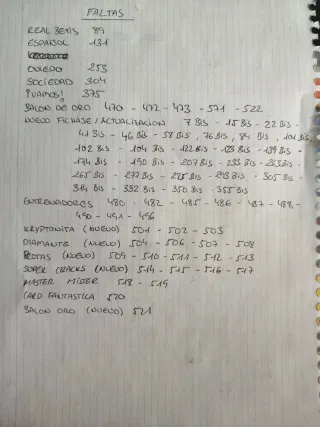 FALTAS
REAL BETIS 89
ESPAÑOL 131
OVIEDO 253
SOCIEDAD 304
¡VAMOS! 375
BALON DE ORO 470 - 472 - 473 - 571 - 522
NUEVO FICHAJE/ACTUALIZACION 7 BIS - 15 BIS - 22 BIS -
41 BIS - 46 BIS - 58 BIS, 76 BIS, 84 BIS, 101 BIS
102 BIS - 104 BIS - 122 BIS - 128 BIS - 139 BIS -
174 BIS - 190 BIS - 207 BIS - 233 BIS - 263 BIS
265 BIS - 277 BIS - 278 BIS - 293 BIS - 305 BIS -
314 BIS - 332 BIS - 350 BIS - 355 BIS
ENTRENADORES 480 - 482 - 485 - 486 - 487 - 488 -
490 - 491 - 496
KRYPTONITA (NUEVO) 501 - 502 - 503
DIAMANTE (NUEVO) 504 - 506 - 507 - 508
PROTAS (NUEVO) 509 - 510 - 511 - 512 - 513
SUPER CRACKS (NUEVO) 514 - 515 - 516 - 517
MASTER MISTER 518 - 519
CARD FANTASTICA 520
BALON ORO (NUEVO) 521